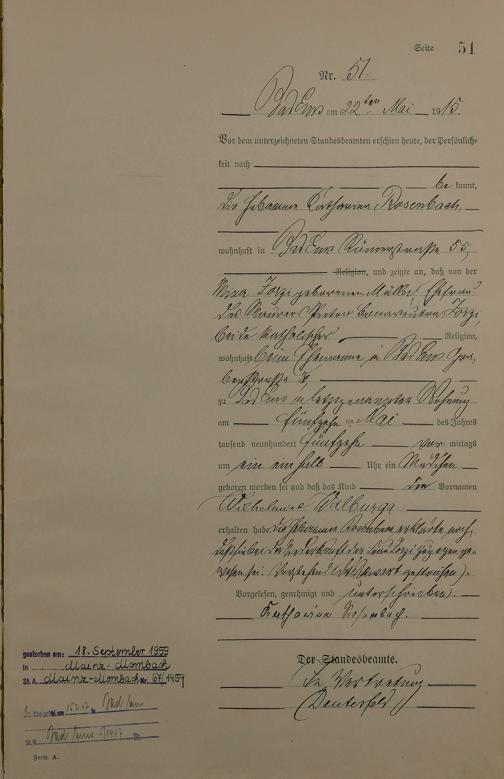 Seite 51
Nr. 51.
Bad Ems am 22ten Mai 1915.
Vor dem unterzeichneten Standesbeamten erschien heute, der Persönlich-
keit nach
be kannt,
die Hebamme Katharina Rosenbach,
wohnhaft in Bad Ems Römerstraße 55,
Religion, und zeigte an, daß von der
geborenen Müller, Ehefrau
des Maurers Pietro Bonaventura
beide katholischer Religion,
wohnhaft beim Ehemanne in Bad Ems
zu Bad Ems in letztgenannter Wohnung
am fünfzehn ten Mai des Jahres
tausend neunhundert fünfzehn vor mittags
um ein einhalb Uhr ein Mädchen
geboren worden sei und daß das Kind den Vornamen
Wilhelmine Walburga
erhalten habe. Die Hebamme Rosenbach erklärte noch,
daß sie bei der Niederkunft der zugegen ge-
wesen sei. (Vorstehend 1 Druckwort gestrichen).
Vorgelesen, genehmigt und unterschrieben.
Katharina Rosenbach.
Der Standesbeamte.
In Vertretung
gestorben am: 18. September 1959
in Mainz-Mombach
St. A. Mainz-Mombach Nr. 67/1959
1. in Bad Ems
St. A. Bad Ems
Form. A.